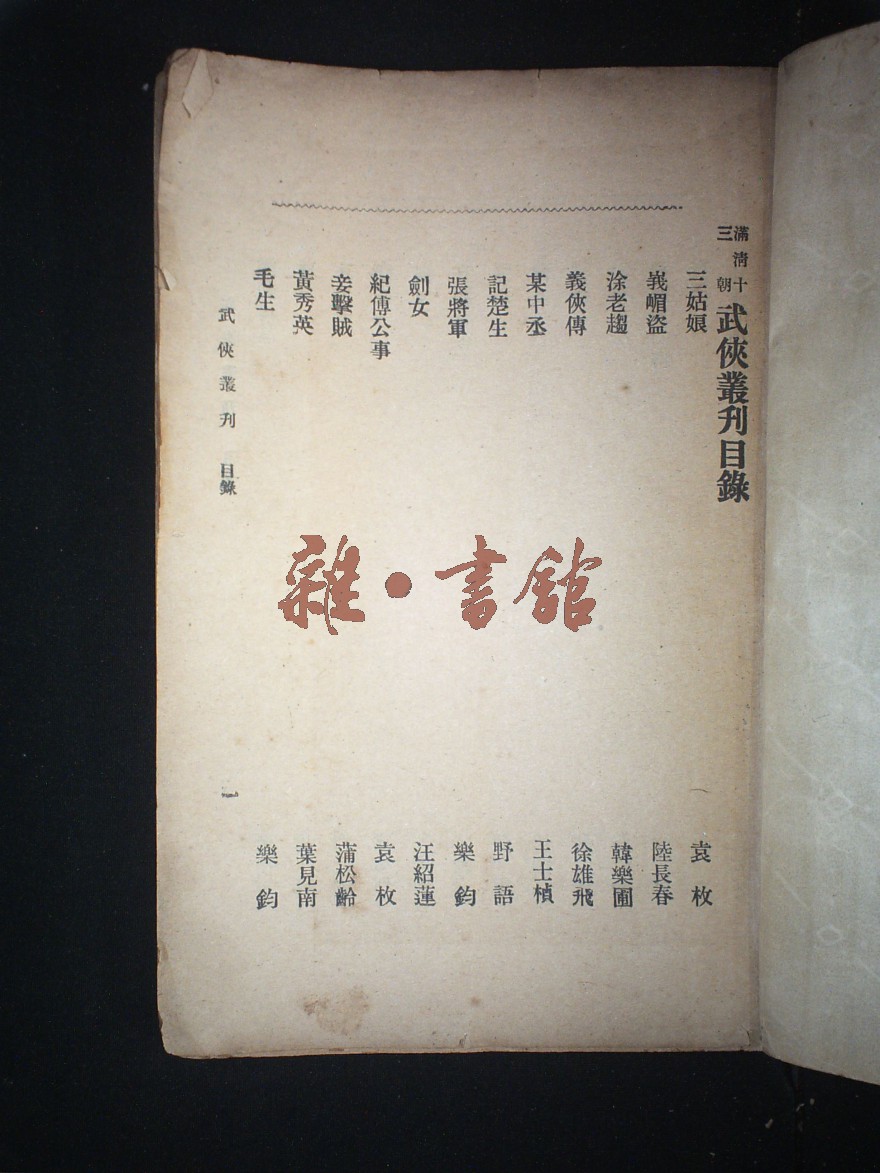 滿清十三朝 武俠叢刊目錄
三姑娘 袁枚
峩嵋盜 陸長春
涂老趨 韓樂圃
義俠傳 徐雄飛
某中丞 王士楨
記楚生 野語
張將軍 樂鈞
劍女 汪紹蓮
紀傅公事 袁枚
妾擊賊 蒲松齡
黃秀英 葉見南
毛生 樂鈞
武俠叢刊 目錄 一
雜·書館